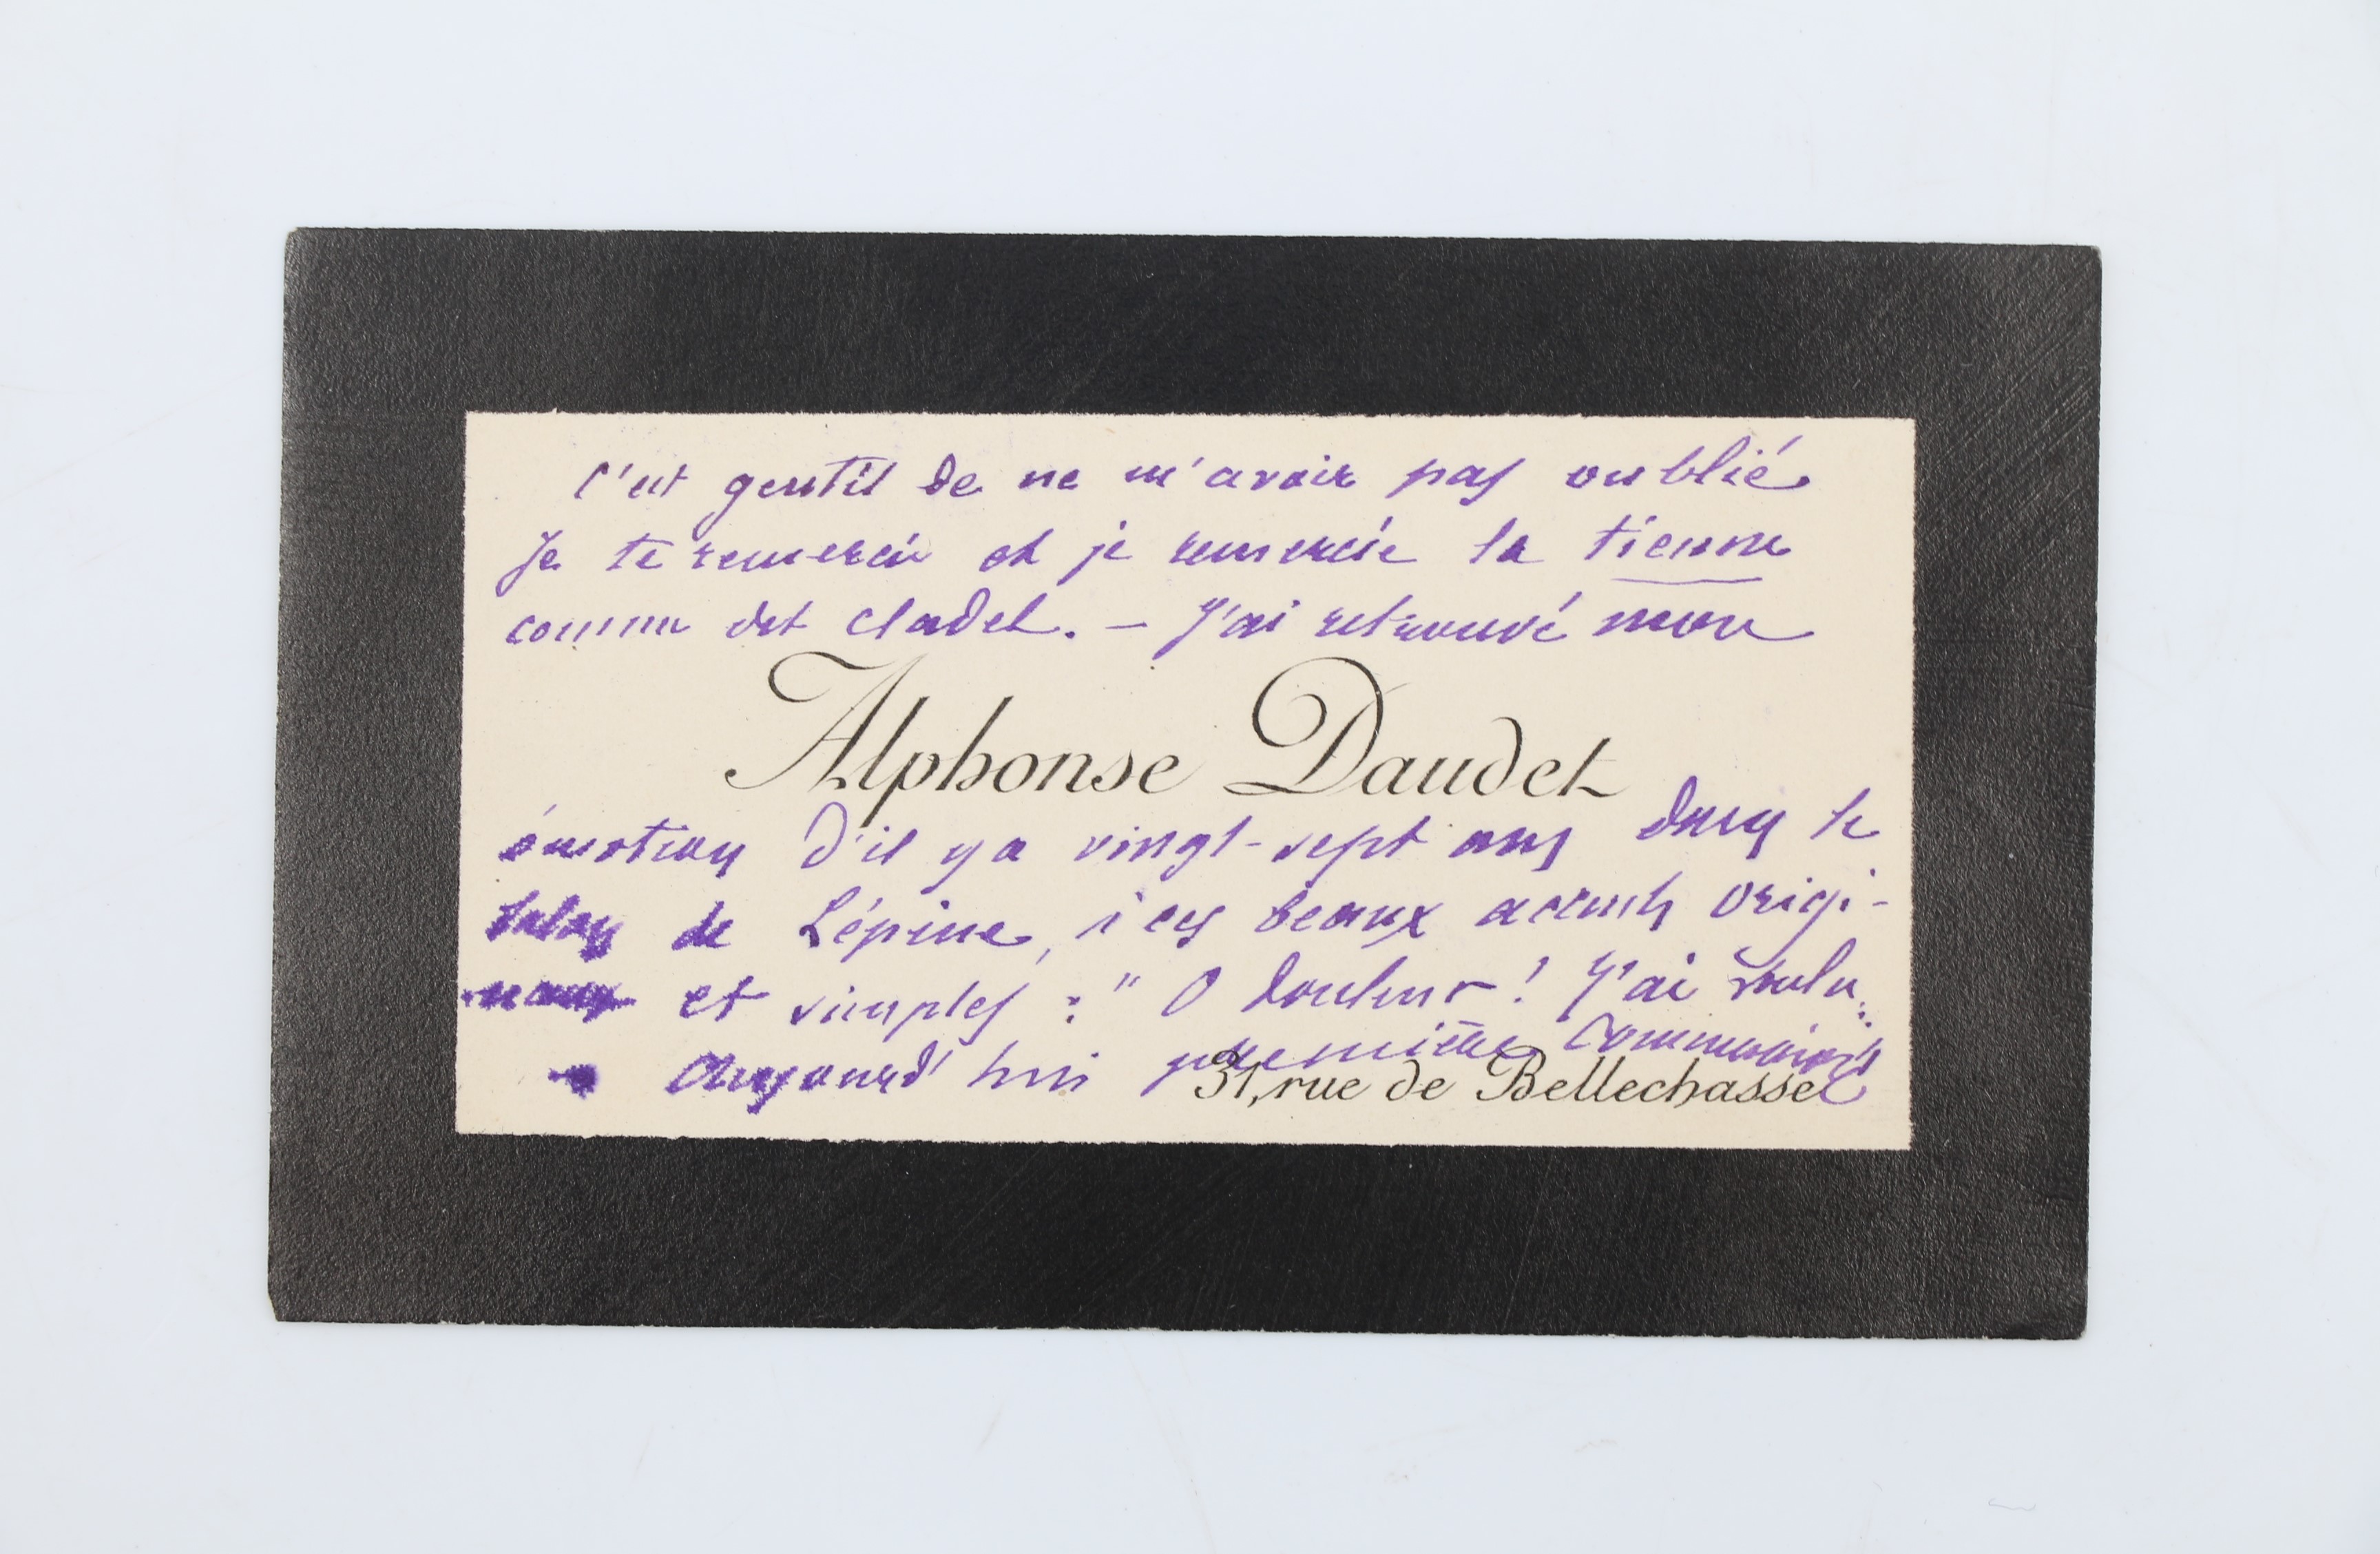 C'est gentil de ne m'avoir pas oublié
Je te remercie et je remercie la tienne
comme dit Cladel. - J'ai retrouvé mon
Alphonse Daudet
émotion d'il y a vingt-sept ans dans le
salon de Lépine, à ces beaux accents origi-
naux et simples : " O douleur ! J'ai voulu..
Aujourd'hui première communion
31, rue de Bellechasse